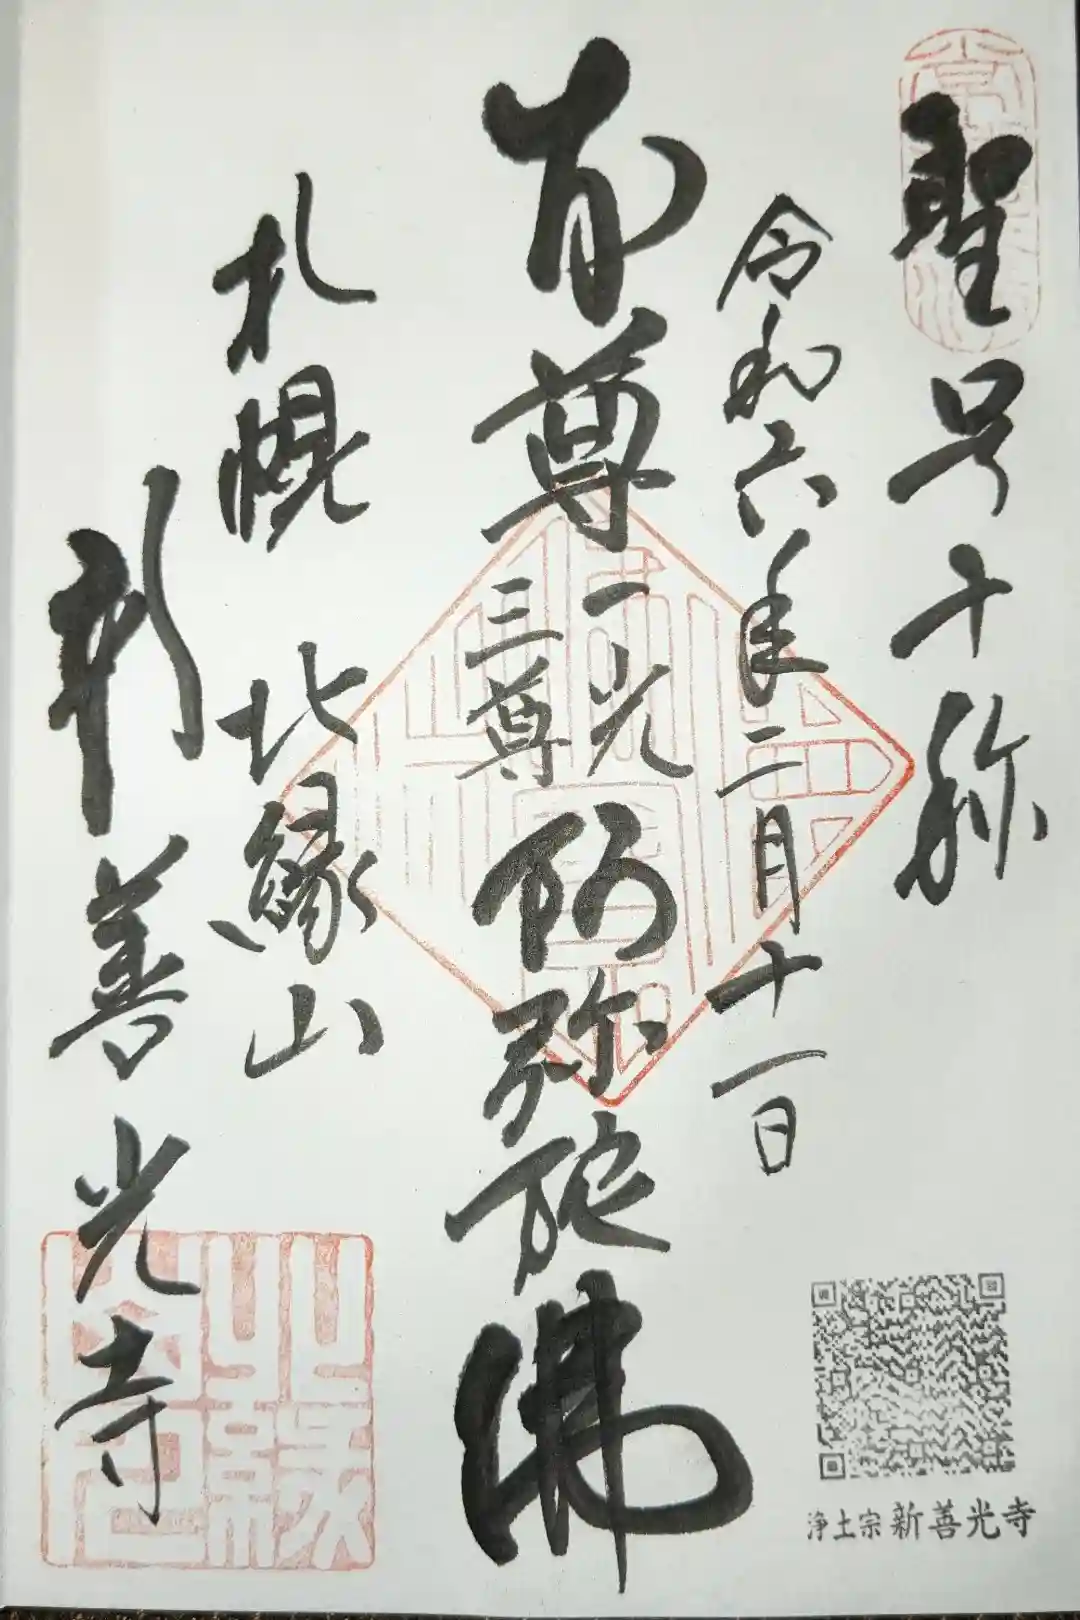 聖号十称
令和六年二月十一日
尊 一光
三尊
阿弥陀佛
札幌 北縁山
新善光寺
浄土宗 新善光寺